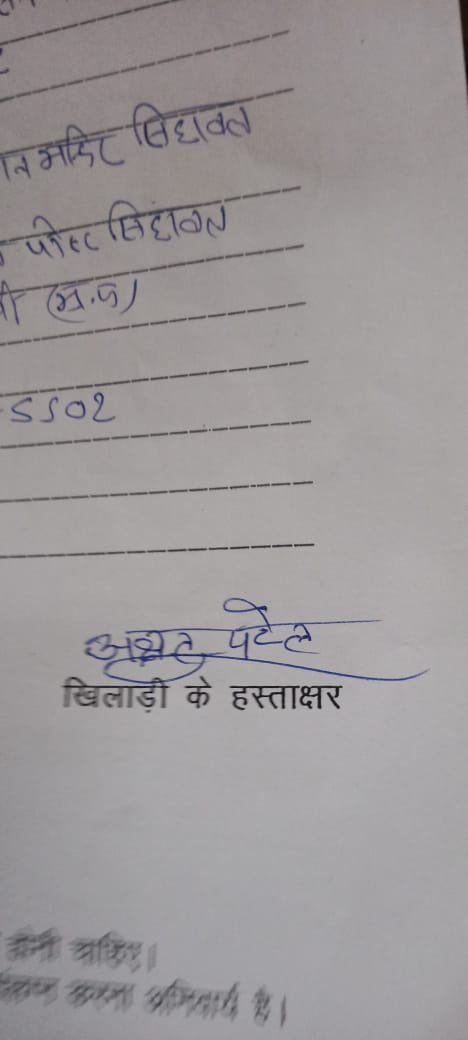 मंदिर सिहावल
पोस्ट सिहावल
(म.प्र)
5502
अक्षत पटेल
खिलाड़ी के हस्ताक्षर
होनी चाहिए।
करना अनिवार्य है।